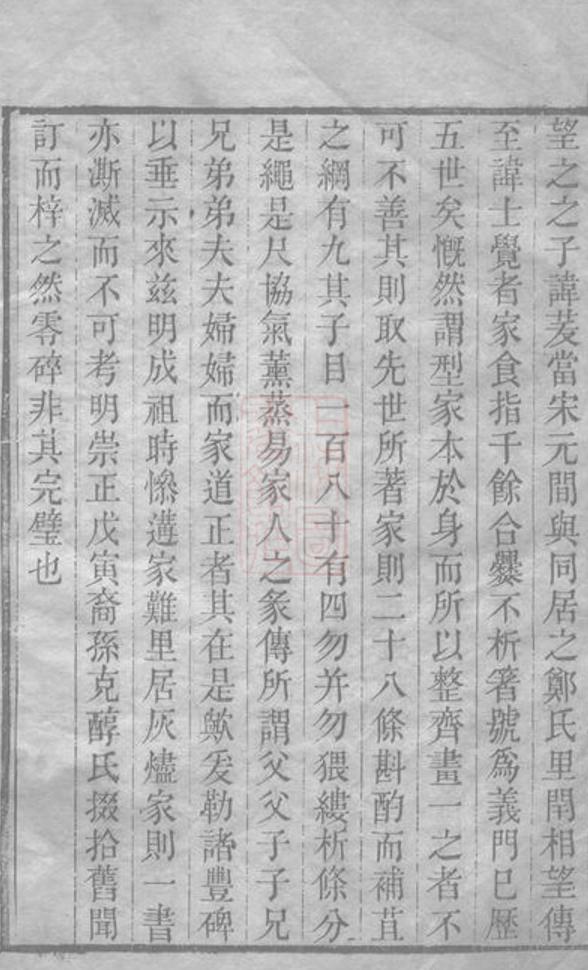 望之之子諱茇當宋元間與同居之鄭氏里閈相望傳
至諱士覺者家食指千餘合爨不析箸號爲義門巳歷
五世矣慨然謂型家本於身而所以整齊畫一之者不
可不善其則取先世所著家則二十八條斟酌而補苴
之綱有九其子目一百八十有四勿幷勿猥縷析條分
是繩是尺協氣薰蒸易家人之彖傳所謂父父子子兄
兄弟弟夫夫婦婦而家道正者其在是歟爰勒諸豐碑
以垂示來兹明成祖時慘遘家難里居灰燼家則一書
亦澌滅而不可考明崇正戊寅裔孫克醇氏掇拾舊聞
訂而梓之然零碎非其完璧也